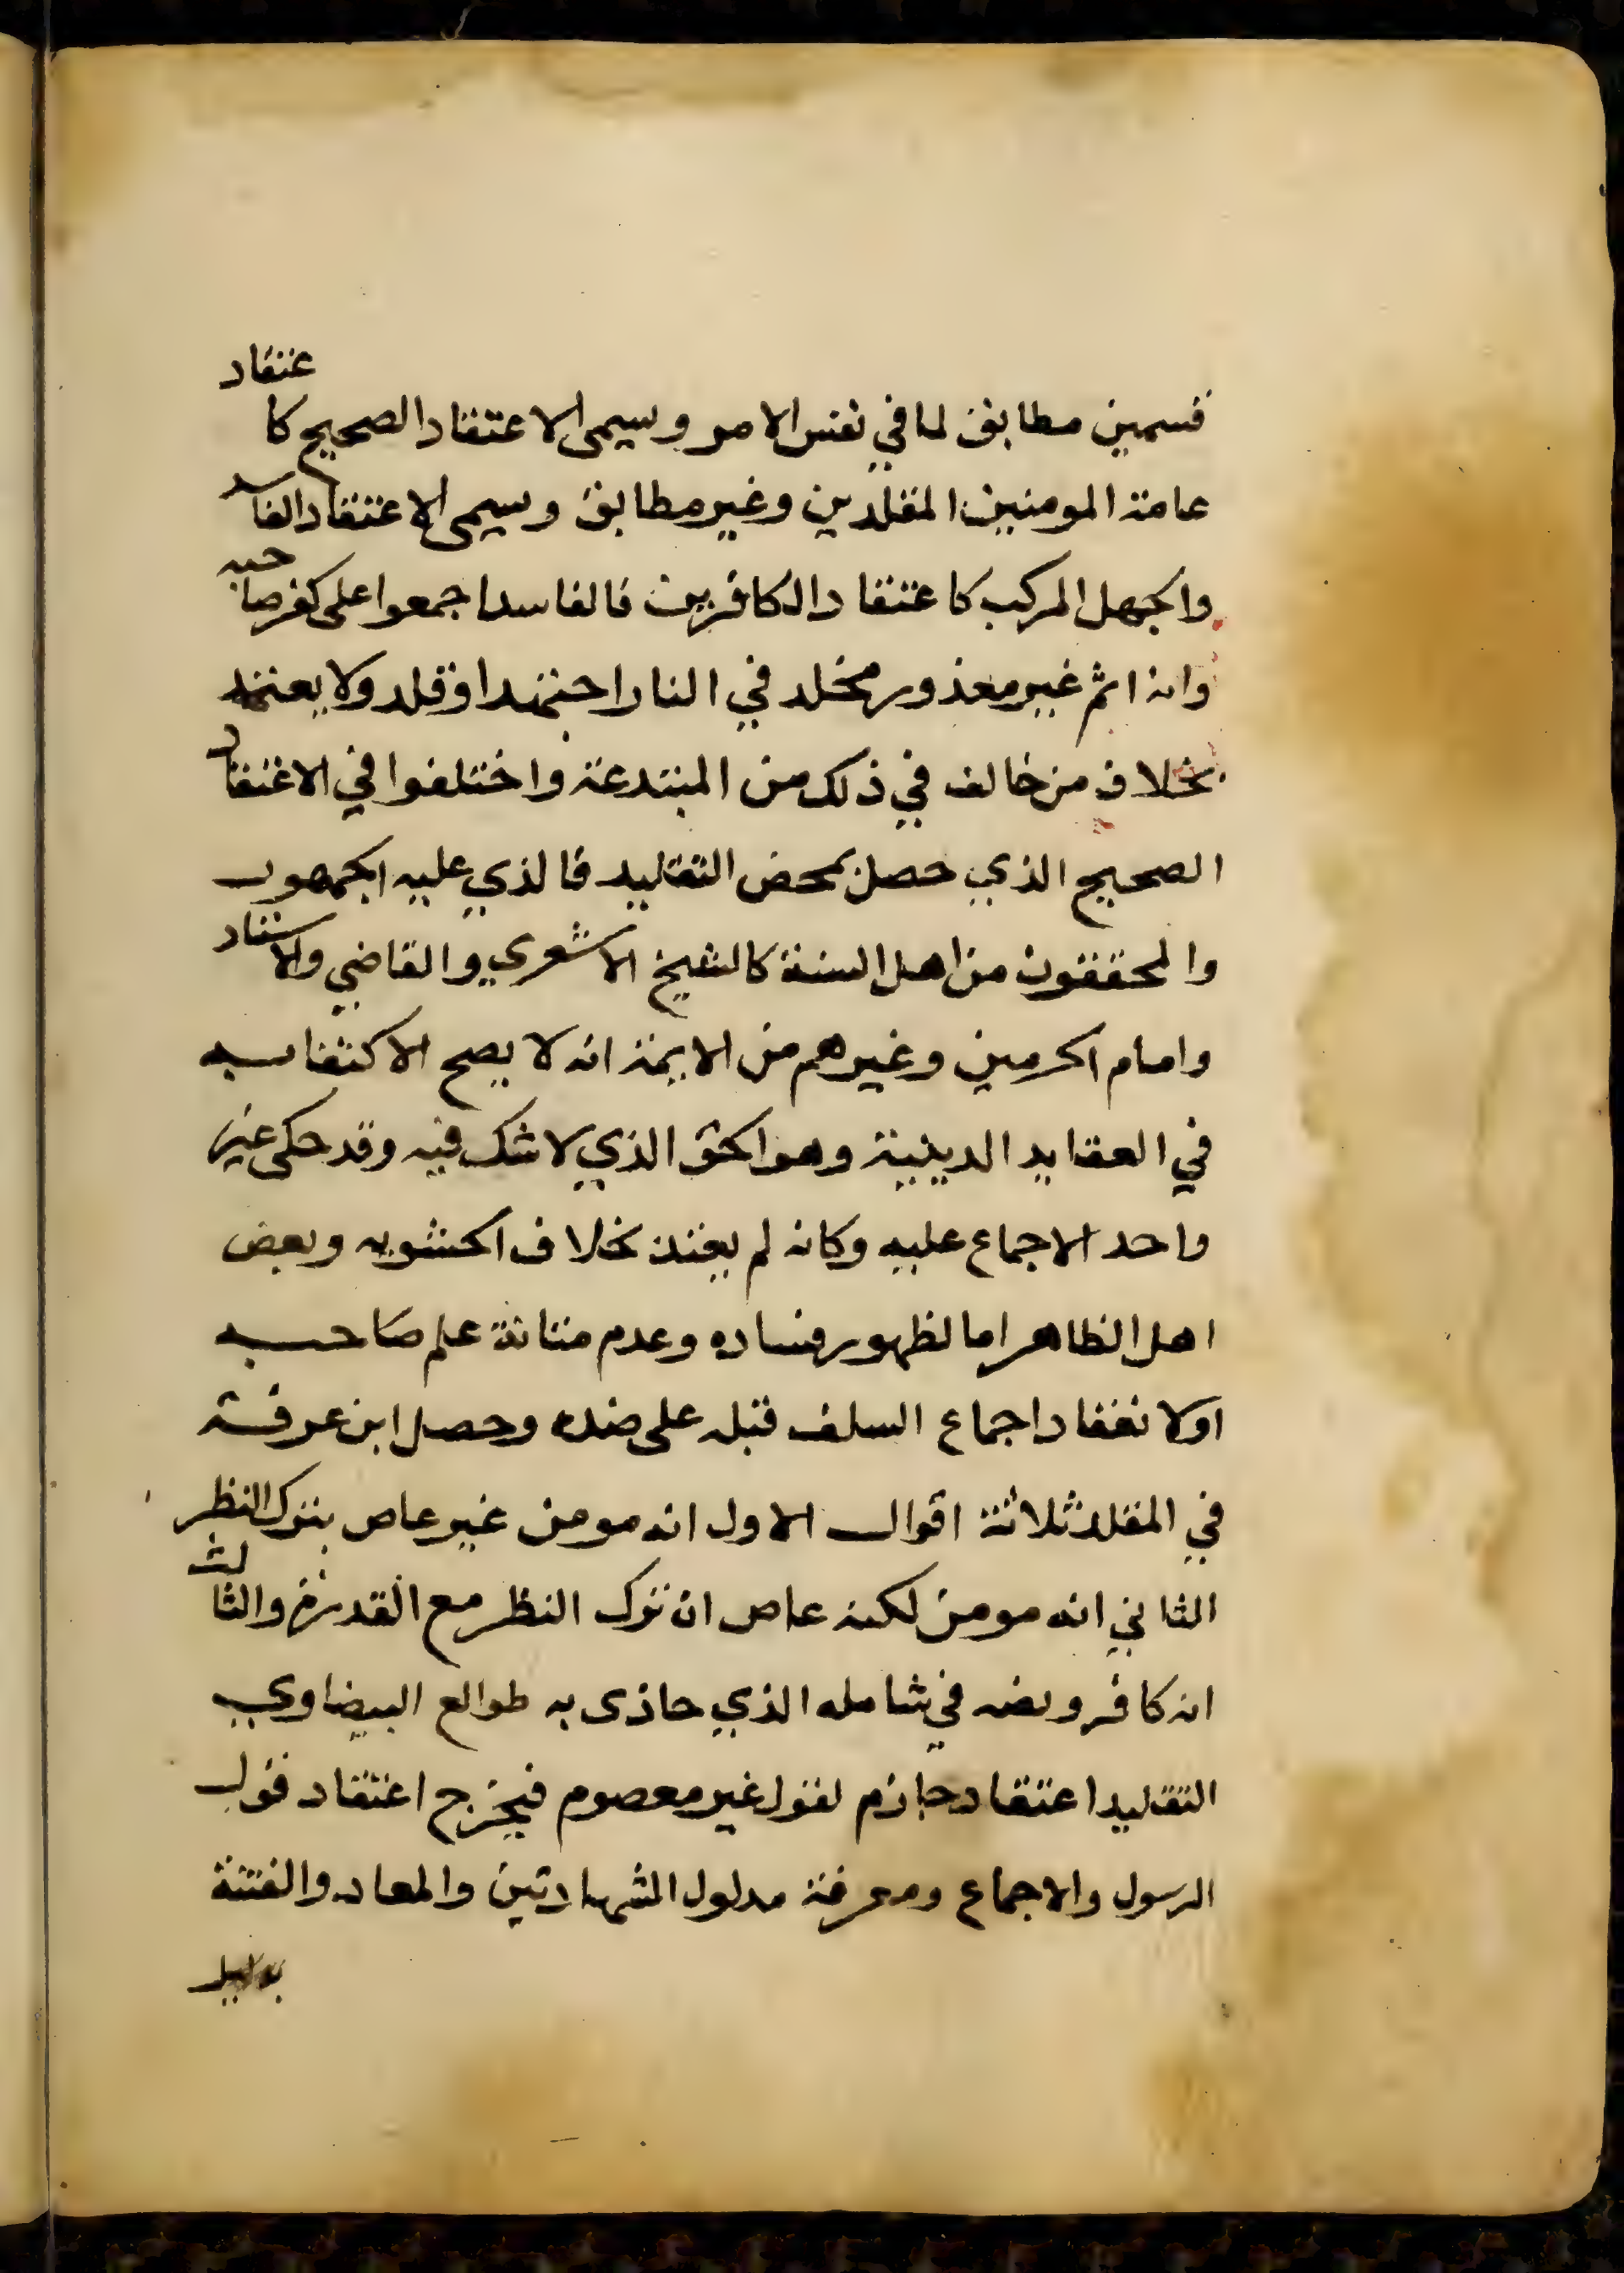 قسمين مطابق لما في نفس الامر ويسمى الاعتقاد الصحيح كاعتقاد
عامة المومنين المقلدين وغير مطابق ويسمى الاعتقاد الفاسد
والجهل المركب كاعتقاد الكافرين فالفاسد اجمعوا على كفر صاحبه
وانه اثم غير معذور مخلد في النار اجتهد او قلد ولا يعتد
بخلاف من خالف في ذلك من المبتدعة واختلفوا في الاعتقاد
الصحيح الذي حصل بمحض التقليد فالذي عليه الجمهور
والمحققون من اهل السنة كالشيخ الاشعري والقاضي والاستاد
وامام الحرمين وغيرهم من الايمة انه لا يصح الاكتفا به
في العقايد الدينية وهو الحق الذي لا شك فيه وقد حكى غير
واحد الاجماع عليه وكانه لم يعتد بخلاف الحشويه وبعض
اهل الظاهر اما لظهور فساده وعدم متانة علم صاحبه
او لانعقاد اجماع السلف قبله على ضده وحصل ابن عرفة
في المقلد ثلاثة اقوال الاول انه مومن غير عاص بترك النظر
الثاني انه مومن لكنه عاص ان ترك النظر مع القدرة والثالث
انه كافر ونصه في شامله الذي حاذى به طوالع البيضاوي
التقليد اعتقاد جازم لقول غير معصوم فيخرج اعتقاد قول
الرسول والاجماع ومعرفة مدلول الشهادتين والمعاد والفتنة
بدليل